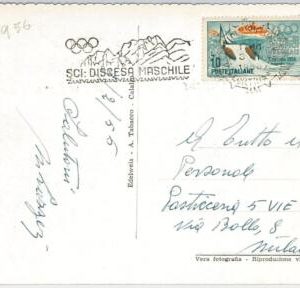 1956
SCI: DISCESA MASCHILE
10
POSTE ITALIANE
Saluti
Edelweis - A. Tabacco - Calal
A Tutto il
Personale
Pasticceria 5 VIE
Via Bollo, 8
Milan
Vera fotografia - Riproduzione vi